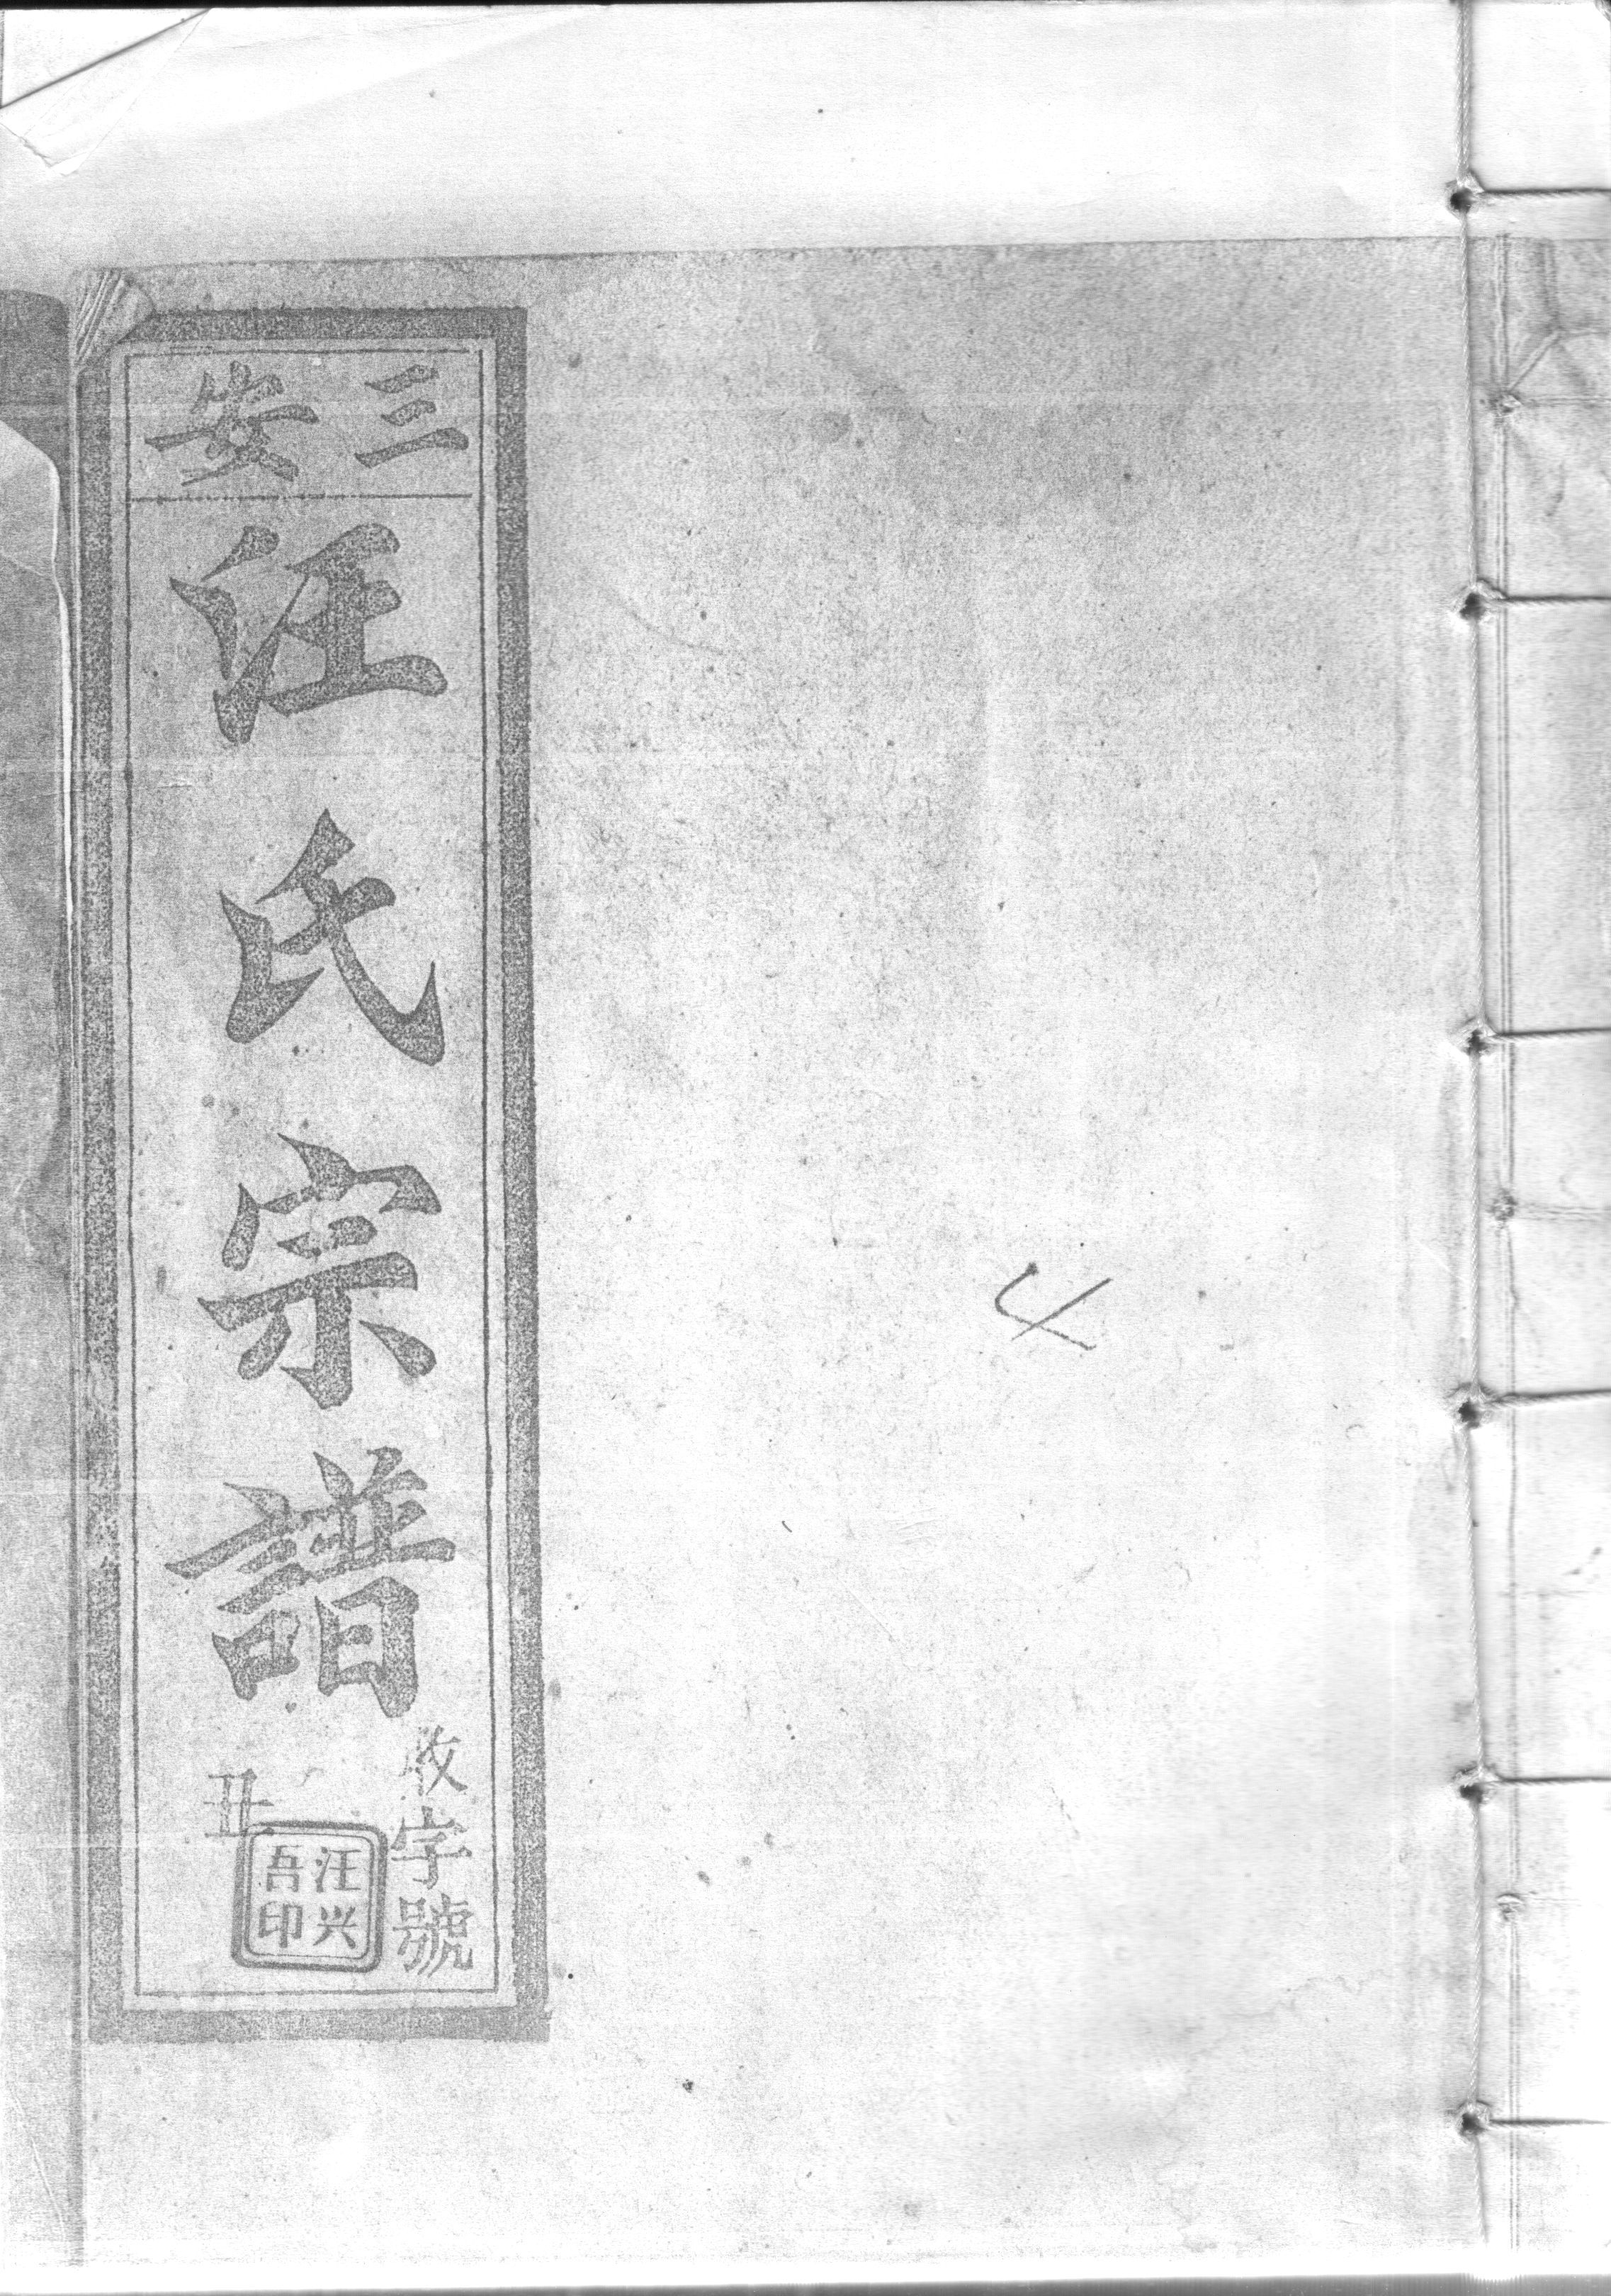 三安
汪氏宗譜
收字號
丑
汪兴
吾印